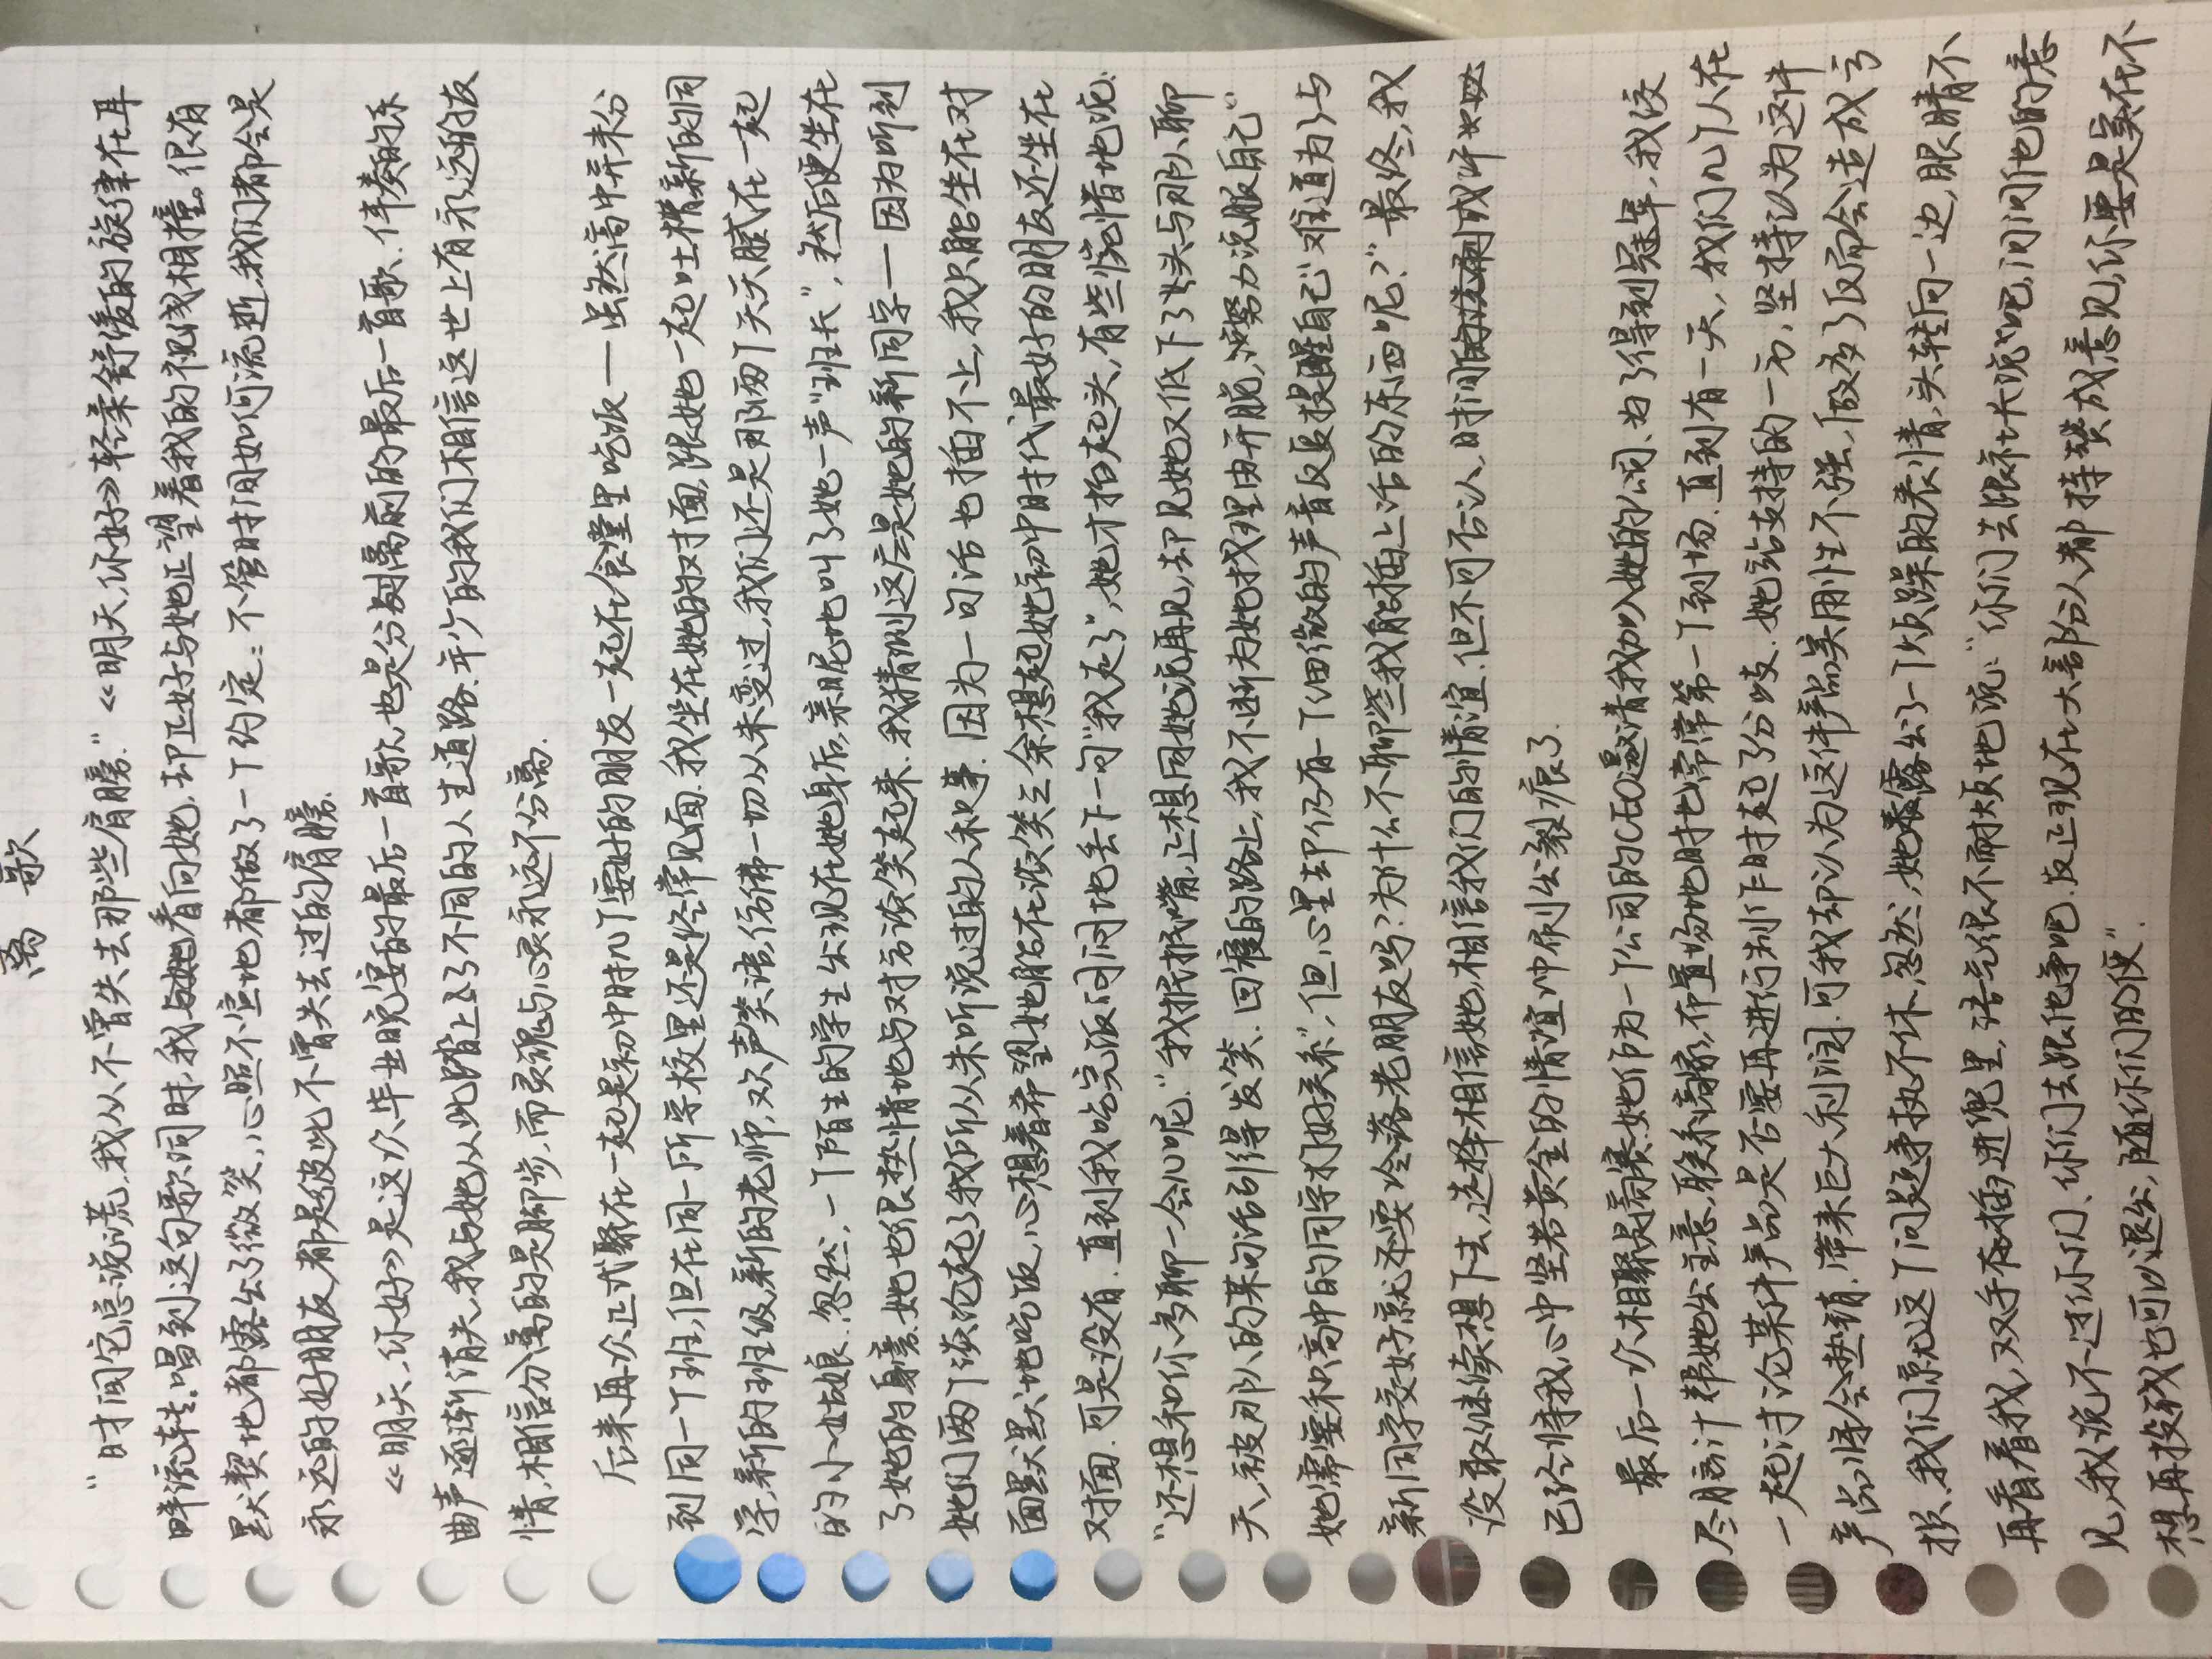 离 歌
“时间它总说谎，我从不曾失去那些肩膀.”《明天,你好》轻柔舒缓的旋律在耳
畔流转,唱到这句歌词时,我与她看向她.却正好与她正望着我的视线相撞.很有
默契地都露出了微笑,心照不宣地都做了一个约定：不管时间如何流逝,我们都会是
永远的好朋友,都是彼此不曾失去过的肩膀.
《明天,你好》是这次毕业晚宴的最后一首歌,也是分别离前的最后一首歌.伴奏的
曲声逐渐消失,我与她从此踏上了不同的人生道路.年少的我们相信这世上有永远的友
情,相信分离的是脚步,而灵魂与心灵永远不分离.
后来再次正式聚在一起是初中时几个要好的朋友一起在食堂里吃饭——虽然高中并未份
到同一个班,但在同一所学校里还是经常见面.我坐在她的对面,跟她一起吐槽新的同
学,新的班级,新的老师,欢声笑语,仿佛一切从未变过,我们还是那两个天天腻在一起
的小姑娘.忽然,一个陌生的学生出现在她身后,亲昵地叫了她一声“班长”,然后便坐在
了她的身旁.她也很热情地与对方谈笑起来.我猜测这应是她的新同学——因为听到
她们两个谈论起了我所从未听说过的人和事.因为一句话也插不上,我只能坐在对
面默默地吃饭,心想着希望她能在谈笑之余想起她初中时代最好的朋友还坐在
对面.可是没有.直到我吃完饭闷闷地丢下一句“我走了”,她才抬起头,有些惋惜地说:
“还想和你多聊一会儿呢.”我抿抿嘴,正想同她说再见,却见她又低下了头与那人聊
天,被那人的某句话引得发笑.回寝的路上,我不断为她找理由开脱,努力说服自己“
她需要和高中的同学打好关系”,但心里却仍有一个细微的声音反复提醒自己“难道为了与
新同学交好就还要冷落老朋友吗?为什么不聊些我能插上话的东西呢?”最终,我
没敢继续想下去,选择相信她,相信我们的情谊.但不可否认,时间
已经将我心中坚若黄金的情谊冲刷出裂痕了.
最后一次相聚是商赛.她作为一个公司的CEO邀请我加入她的公司.为了得到冠军,我绞
尽脑汁帮她出主意,联系商家,布置场地时也常常第一个到场.直到有一天,我们几个人在
一起讨论某件产品是否要再进行制作时起了分歧.她站支持的一方,坚持认为这件
产品将会热销.带来巨大利润.可我却认为这件产品实用性不强,做多了反而会造成亏
损.我们就这个问题争执不休.忽然,她暴露出了一个烦躁的表情,头转向一边,眼睛不
再看着我,双手插进兜里,语气很不耐烦地说:“你们去跟社长说吧,问问他的意
见,我说不过你们、你们去跟他争吧.反正现在大部份人都持赞成意见,你要是实在不
想再投钱也可以退出,随你们的便”.